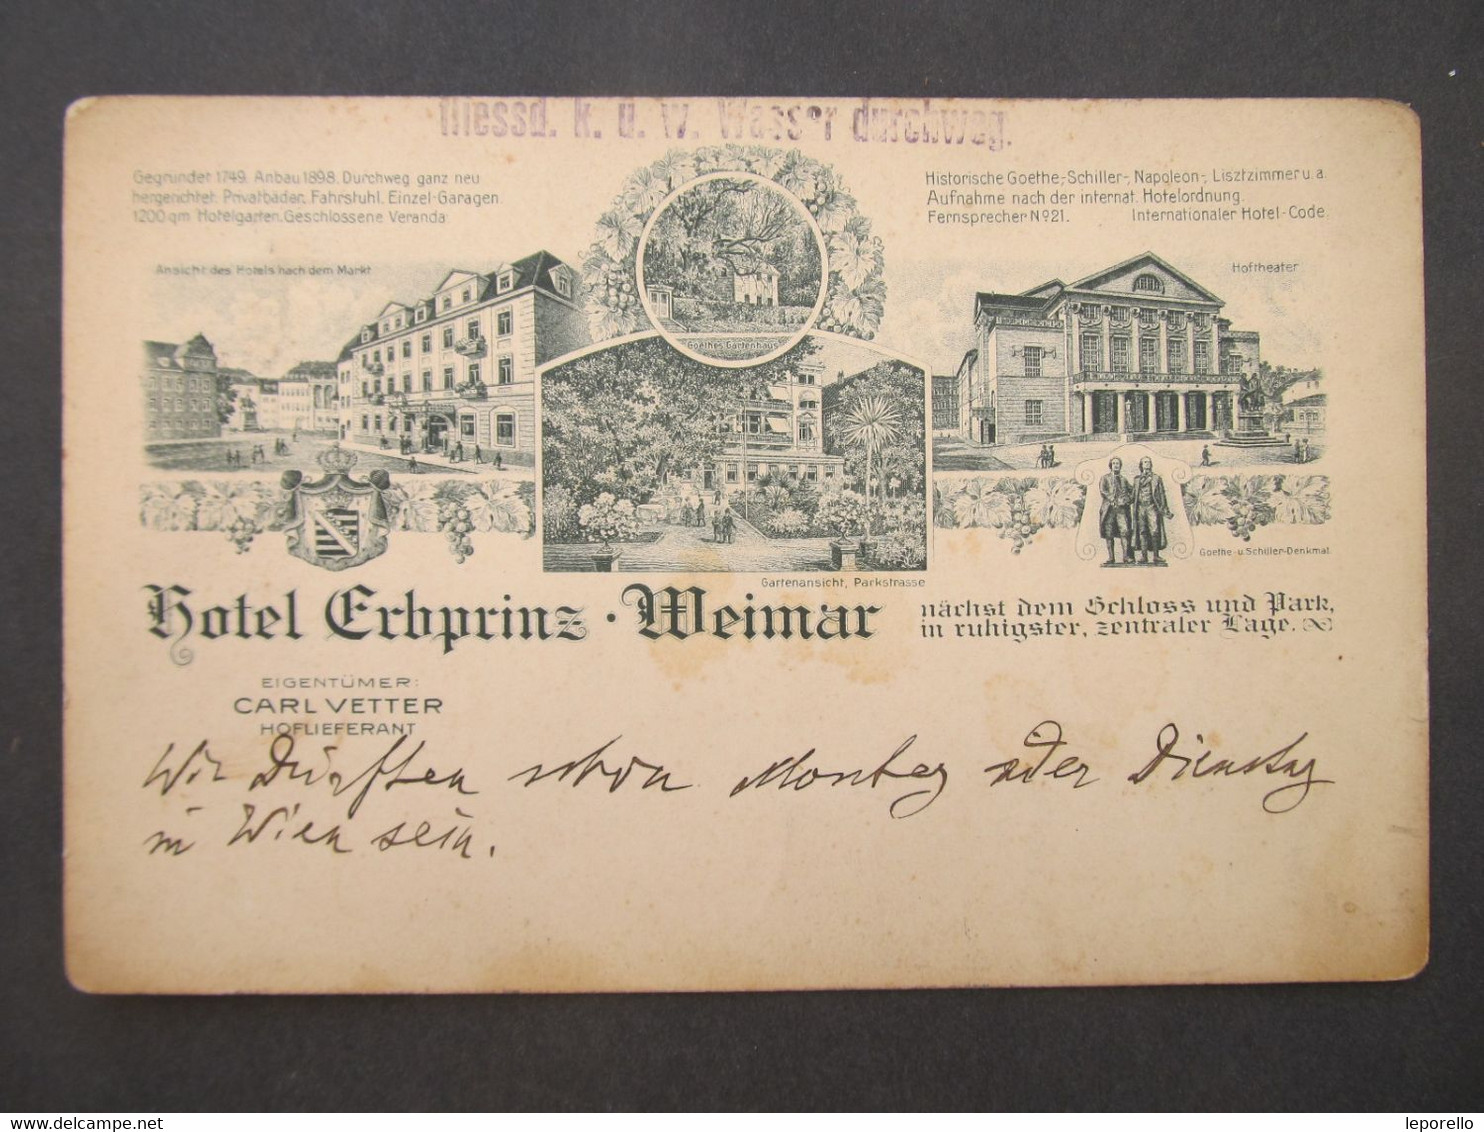 fliessd. k. u. w. Wasser durchweg.
Gegründet 1749. Anbau 1898. Durchweg ganz neu
hergerichtet. Privatbäder. Fahrstuhl. Einzel-Garagen.
1200 qm Hotelgarten. Geschlossene Veranda
Historische Goethe-, Schiller-, Napoleon-, Lisztzimmer u. a.
Aufnahme nach der internat. Hotelordnung.
Fernsprecher No 21. Internationaler Hotel-Code.
Ansicht des Hotels nach dem Markt
Goethes Gartenhaus
Hoftheater
Goethe- u Schiller-Denkmal.
Gartenansicht, Parkstrasse
Hotel Erbprinz · Weimar
nächst dem Schloss und Park,
in ruhigster, zentraler Lage.
EIGENTÜMER:
CARL VETTER
HOFLIEFERANT
Wir dürften schon Montag oder Dienstag
in Wien sein.
delcampe.net
leporello